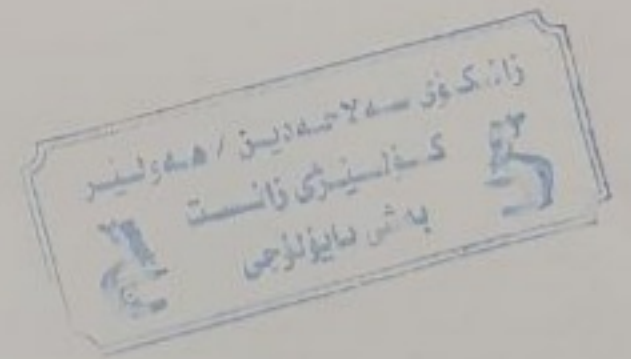 زانکۆی سەلاحەدین / هەولێر
کۆلێژی زانست
بەشی بایۆلۆجی